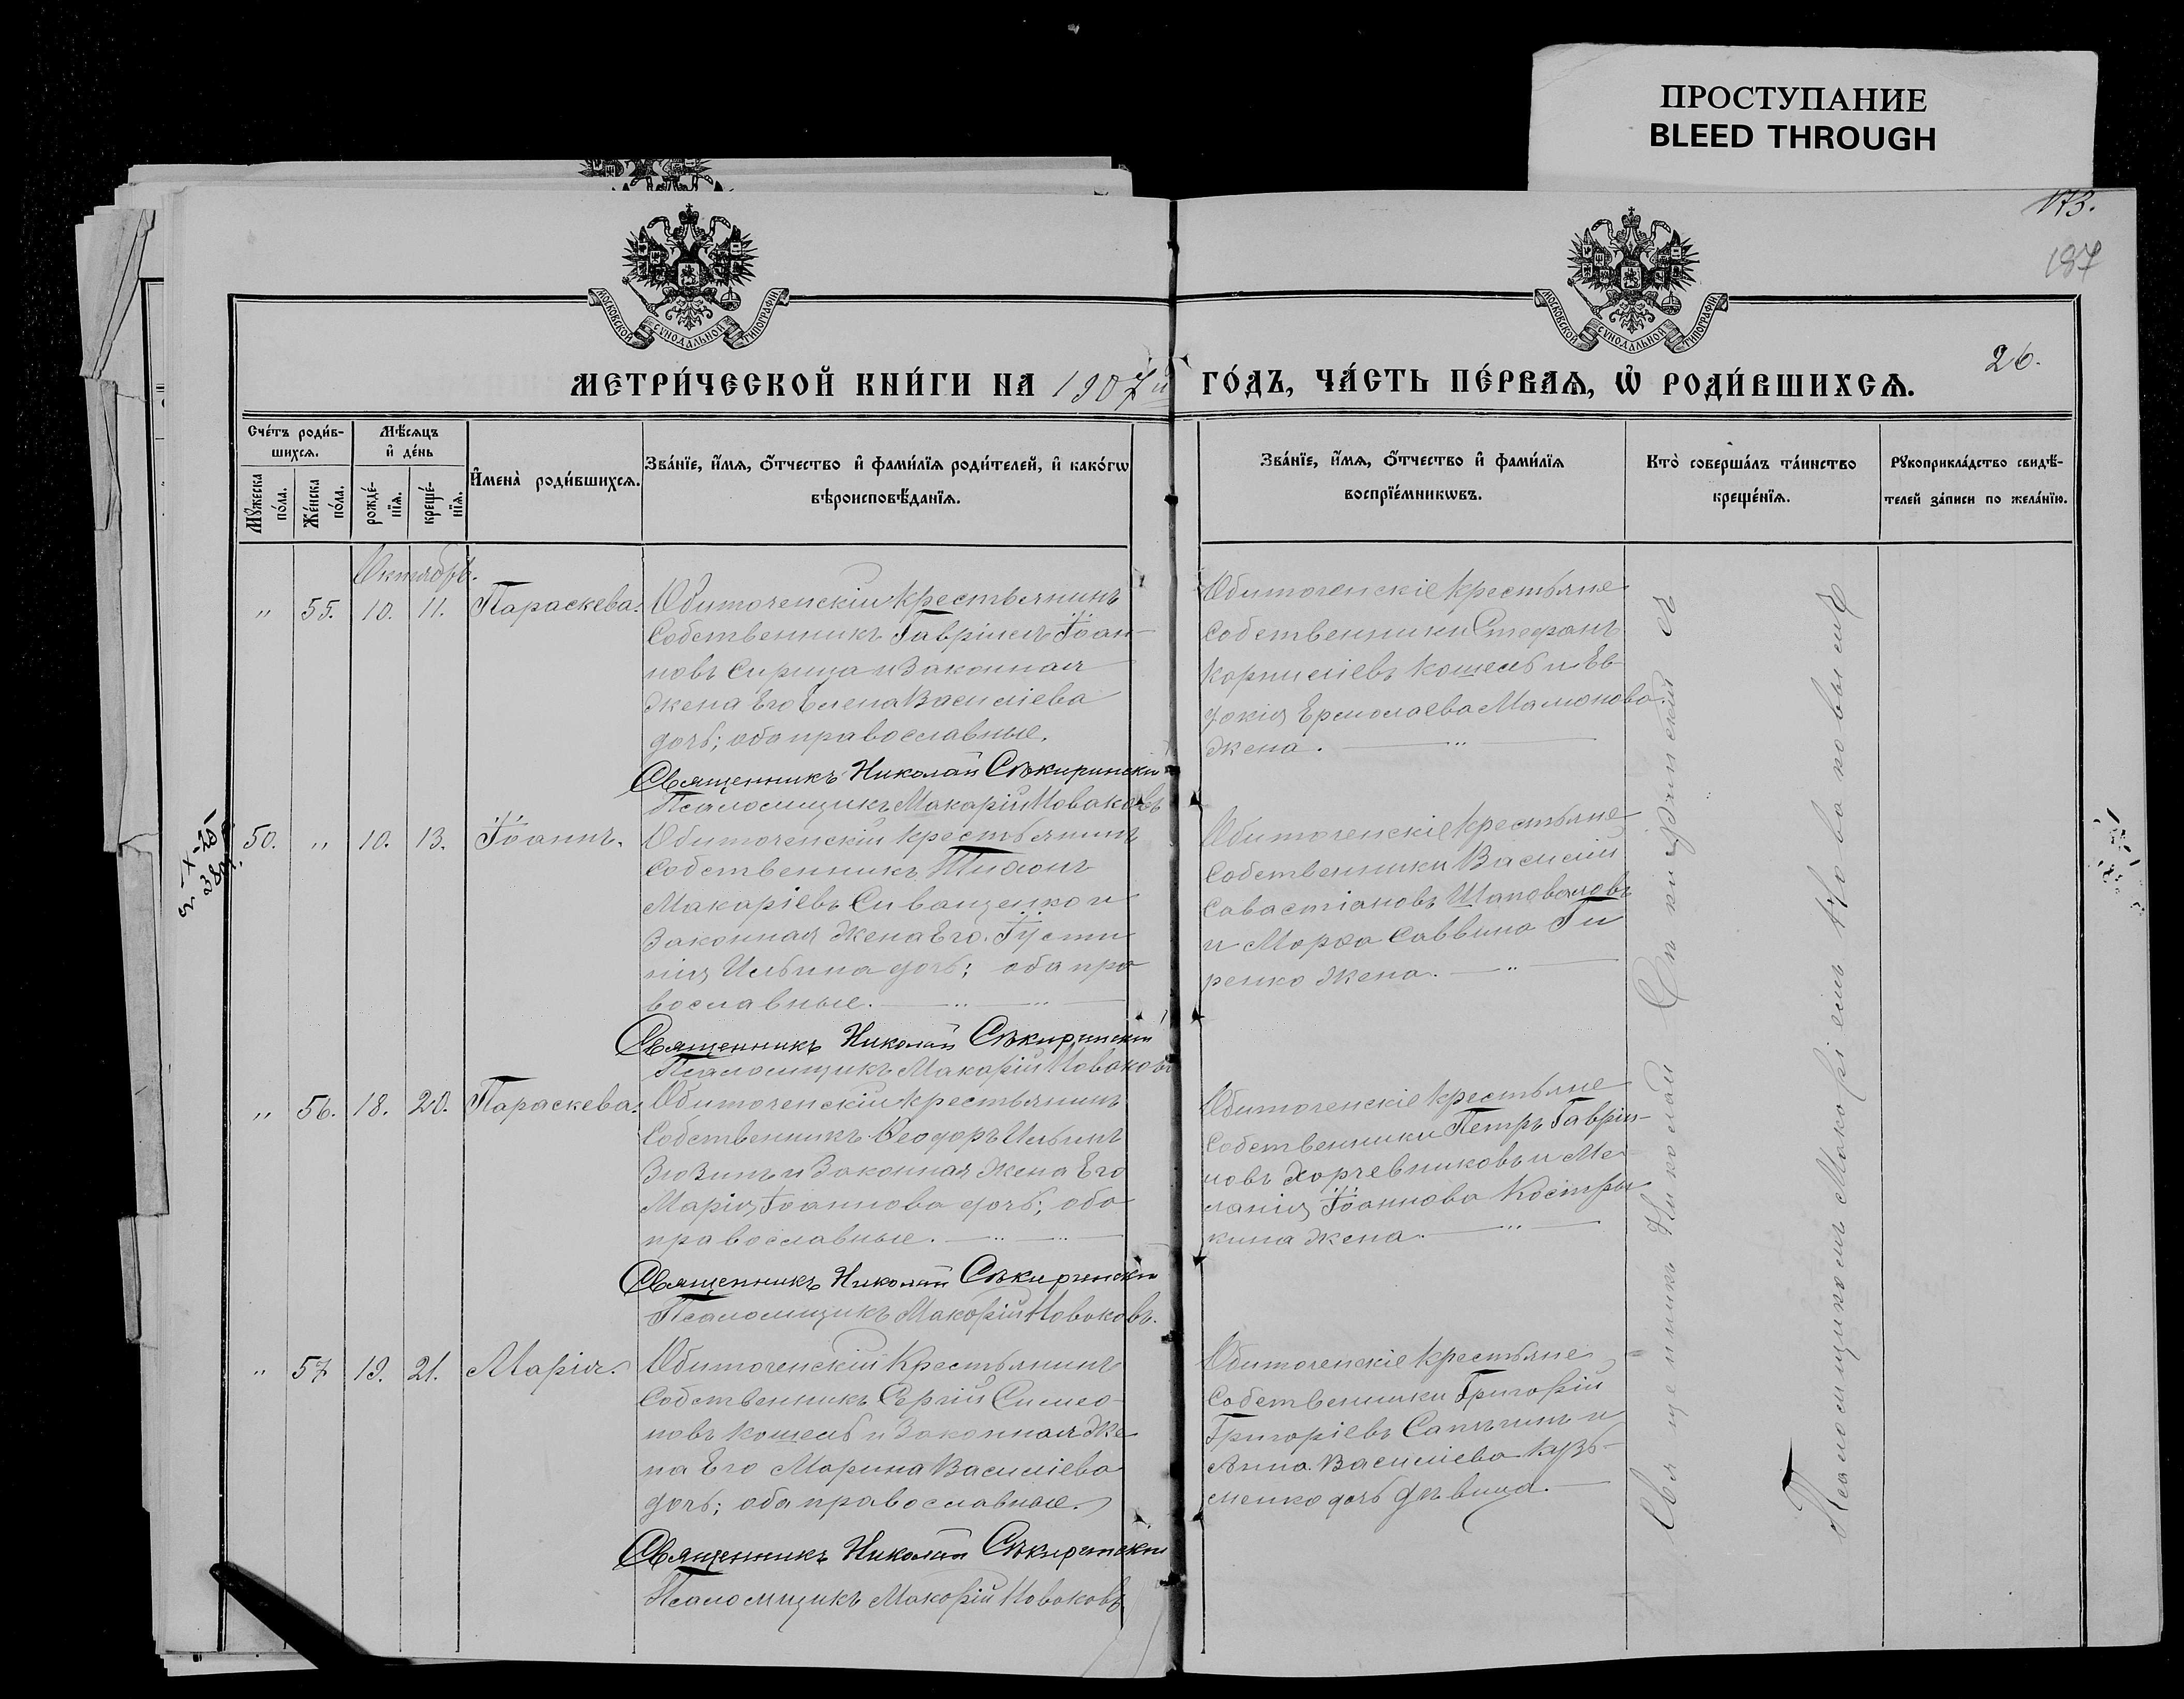 ПРОСТУПАНИЕ
BLEED THROUGH
173.
187
26.
МОСКОВСКОЙ СУНОДАЛЬНОЙ ТИПОГРАФІИ
МОСКОВСКОЙ СУНОДАЛЬНОЙ ТИПОГРАФІИ
МЕТРИ́ЧЕСКОЙ КНИ́ГИ НА 1907й ГО́ДЪ, ЧА́СТЬ ПЕ́РВАѦ, Ѡ҆ РОДИ́ВШИХСѦ.
Сче́тъ роди́в-
шихсѧ.
Мꙋ́жеска по́ла.
Же́нска по́ла.
Мѣ́сѧцъ
и҆ де́нь
рожде́-
нїѧ.
креще́-
нїѧ.
И҆мена̀ роди́вшихсѧ.
Зва́нїе, и҆́мѧ, ѻ҆́тчество и҆ фами́лїѧ роди́телей, и҆ како́гѡ
вѣроисповѣ́данїѧ.
Зва́нїе, и҆́мѧ, ѻ҆́тчество и҆ фами́лїѧ
воспрїе́мникѡвъ.
Кто̀ соверша́лъ та́инство
креще́нїѧ.
Рꙋкоприкла́дство свидѣ́-
телей за́писи по жела́нїю.
Октябрь.
" 55. 10. 11. Параскева.
Обиточенскій крестьянинъ
Собственникъ Гавріилъ Іоан-
новъ Сирица и Законная
Жена Его Елена Василіева
дочь; оба православные.
Священникъ Николай Сѣкиринскій
Псаломщикъ Макарій Новаковъ
Обиточенскіе крестьяне
Собственники Стефанъ
Корниліевъ Кошель и Ев-
докія Ермолаева Мамонова
Жена.
50. " 10. 13. Іоаннъ.
Обиточенскій крестьянинъ
Собственникъ Тихонъ
Макаріевъ Сиващенко и
Законная Жена Его Іусти
нія Ильина дочь; оба пра
вославные.
Священникъ Николай Сѣкиринскій
Псаломщикъ Макарій Новаковъ
Обиточенскіе крестьяне
Собственники Василій
Савастіановъ Шаповаловъ
и Марфа Саввина Ги
ренко Жена.
" 56. 18. 20. Параскева.
Обиточенскій крестьянинъ
Собственникъ Ѳеодоръ Ильинъ
Зюзинъ и Законная Жена Его
Марія Іоаннова дочь; оба
православные.
Священникъ Николай Сѣкиринскій
Псаломщикъ Макарій Новаковъ.
Обиточенскіе крестьяне
Собственники Петръ Гаврiи-
новъ Харчевниковъ и Ме
ланія Іоаннова Костры
кина Жена.
" 57 19. 21. Марія.
Обиточенскій Крестьянинъ
Собственникъ Сергій Симео-
новъ Кошель и Законная Же
на Его Марина Василіева
дочь; оба православные.
Священникъ Николай Сѣкиринскій
Псаломщикъ Макарій Новаковъ
Обиточенскіе крестьяне
Собственники Григорій
Григоріевъ Сапъгинъ и
Анна Василіева Кузь-
менко дочь дѣвица.
Священникъ Николай Сѣкиринскій съ
Псаломщикомъ Макаріемъ Новаковымъ